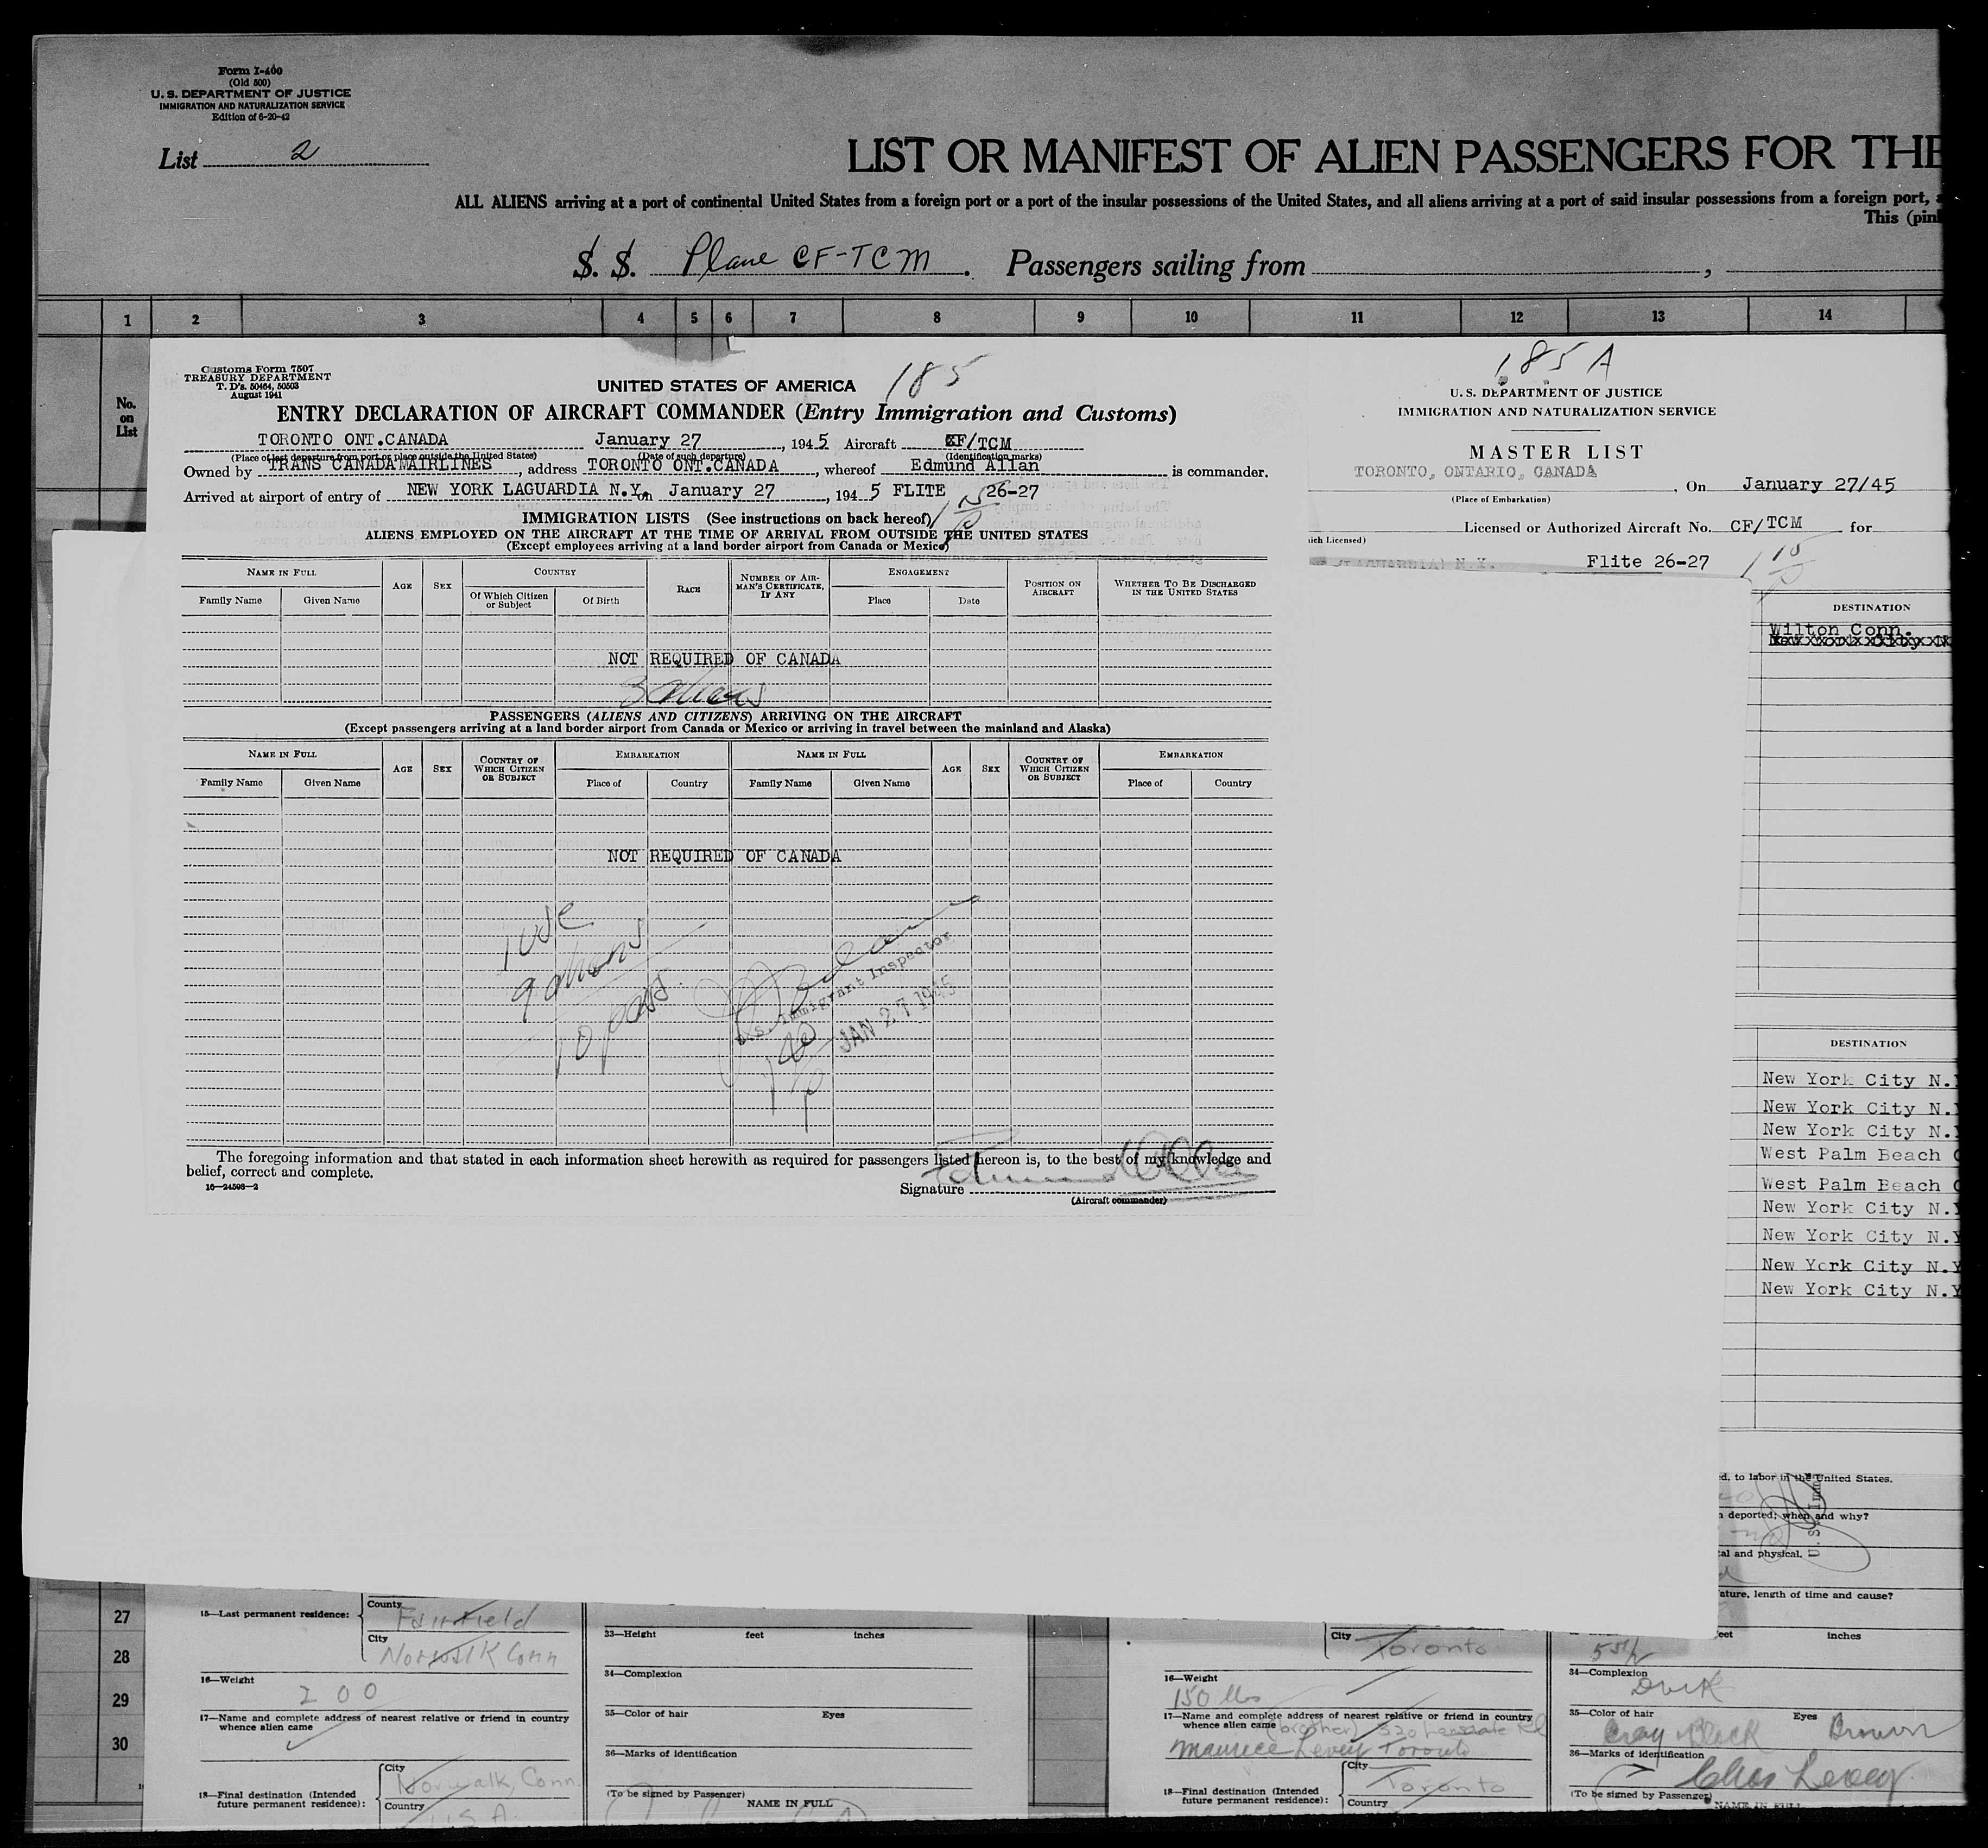 Form I-400
(Old 500)
U. S. DEPARTMENT OF JUSTICE
IMMIGRATION AND NATURALIZATION SERVICE
Edition of 6-20-42
List 2
LIST OR MANIFEST OF ALIEN PASSENGERS FOR THE
ALL ALIENS arriving at a port of continental United States from a foreign port or a port of the insular possessions of the United States, and all aliens arriving at a port of said insular possessions from a foreign port, a
This (pink
S. S. Plane CF-TCM. Passengers sailing from ,
1 2 3 4 5 6 7 8 9 10 11 12 13 14
No.
on
List
Customs Form 7507
TREASURY DEPARTMENT
T. D's. 50464, 50503
August 1941
UNITED STATES OF AMERICA
185
ENTRY DECLARATION OF AIRCRAFT COMMANDER (Entry Immigration and Customs)
TORONTO ONT.CANADA January 27, 1945 Aircraft CF/TCM
(Place of last departure from port or place outside the United States) (Date of such departure) (Identification marks)
Owned by TRANS CANADA AIRLINES, address TORONTO ONT.CANADA, whereof Edmund Allan is commander.
Arrived at airport of entry of NEW YORK LAGUARDIA N.Y. on January 27, 1945 FLITE 26-27
IMMIGRATION LISTS (See instructions on back hereof)
ALIENS EMPLOYED ON THE AIRCRAFT AT THE TIME OF ARRIVAL FROM OUTSIDE THE UNITED STATES
(Except employees arriving at a land border airport from Canada or Mexico)
NAME IN FULL AGE SEX COUNTRY RACE NUMBER OF AIRMAN'S CERTIFICATE, IF ANY ENGAGEMENT POSITION ON AIRCRAFT WHETHER TO BE DISCHARGED IN THE UNITED STATES
Family Name Given Name Of Which Citizen or Subject Of Birth Place Date
NOT REQUIRED OF CANADA
3 aliens
PASSENGERS (ALIENS AND CITIZENS) ARRIVING ON THE AIRCRAFT
(Except passengers arriving at a land border airport from Canada or Mexico or arriving in travel between the mainland and Alaska)
NAME IN FULL AGE SEX COUNTRY OF WHICH CITIZEN OR SUBJECT EMBARKATION NAME IN FULL AGE SEX COUNTRY OF WHICH CITIZEN OR SUBJECT EMBARKATION
Family Name Given Name Place of Country Family Name Given Name Place of Country
NOT REQUIRED OF CANADA
1 USC
9 aliens
10 pass.
U.S. Immigrant Inspector
JAN 27 1945
The foregoing information and that stated in each information sheet herewith as required for passengers listed hereon is, to the best of my knowledge and
belief, correct and complete.
16—24598-2
Signature Edmund Allan
(Aircraft commander)
185 A
U. S. DEPARTMENT OF JUSTICE
IMMIGRATION AND NATURALIZATION SERVICE
MASTER LIST
TORONTO, ONTARIO, CANADA, On January 27/45
(Place of Embarkation)
Licensed or Authorized Aircraft No. CF/TCM for
ich Licensed)
(LAGUARDIA) N.Y. Flite 26-27
DESTINATION
Wilton Conn.
New York City N
DESTINATION
New York City N.Y
New York City N.
New York City N.
West Palm Beach
West Palm Beach
New York City N.
New York City N.Y
New York City N.Y
New York City N.Y
d, to labor in the United States.
n deported; when and why?
al and physical.
U.S. Imm
ature, length of time and cause?
27
28
29
30
County Fairfield
15—Last permanent residence:
City Norwalk Conn
16—Weight
200
17—Name and complete address of nearest relative or friend in country
whence alien came
City Norwalk, Conn.
18—Final destination (Intended
future permanent residence):
Country U.S.A.
33—Height feet inches
34—Complexion
35—Color of hair Eyes
36—Marks of identification
(To be signed by Passenger)
NAME IN FULL
City Toronto
16—Weight
150 lbs
17—Name and complete address of nearest relative or friend in country
whence alien came (brother) 520 Lansdale Rd
Maurice Levey Toronto
City Toronto
18—Final destination (Intended
future permanent residence):
Country
eet inches
5 5 1/2
34—Complexion
Dark
35—Color of hair Eyes
Gray Black Brown
36—Marks of identification
Chas Levey
(To be signed by Passenger)
NAME IN FULL